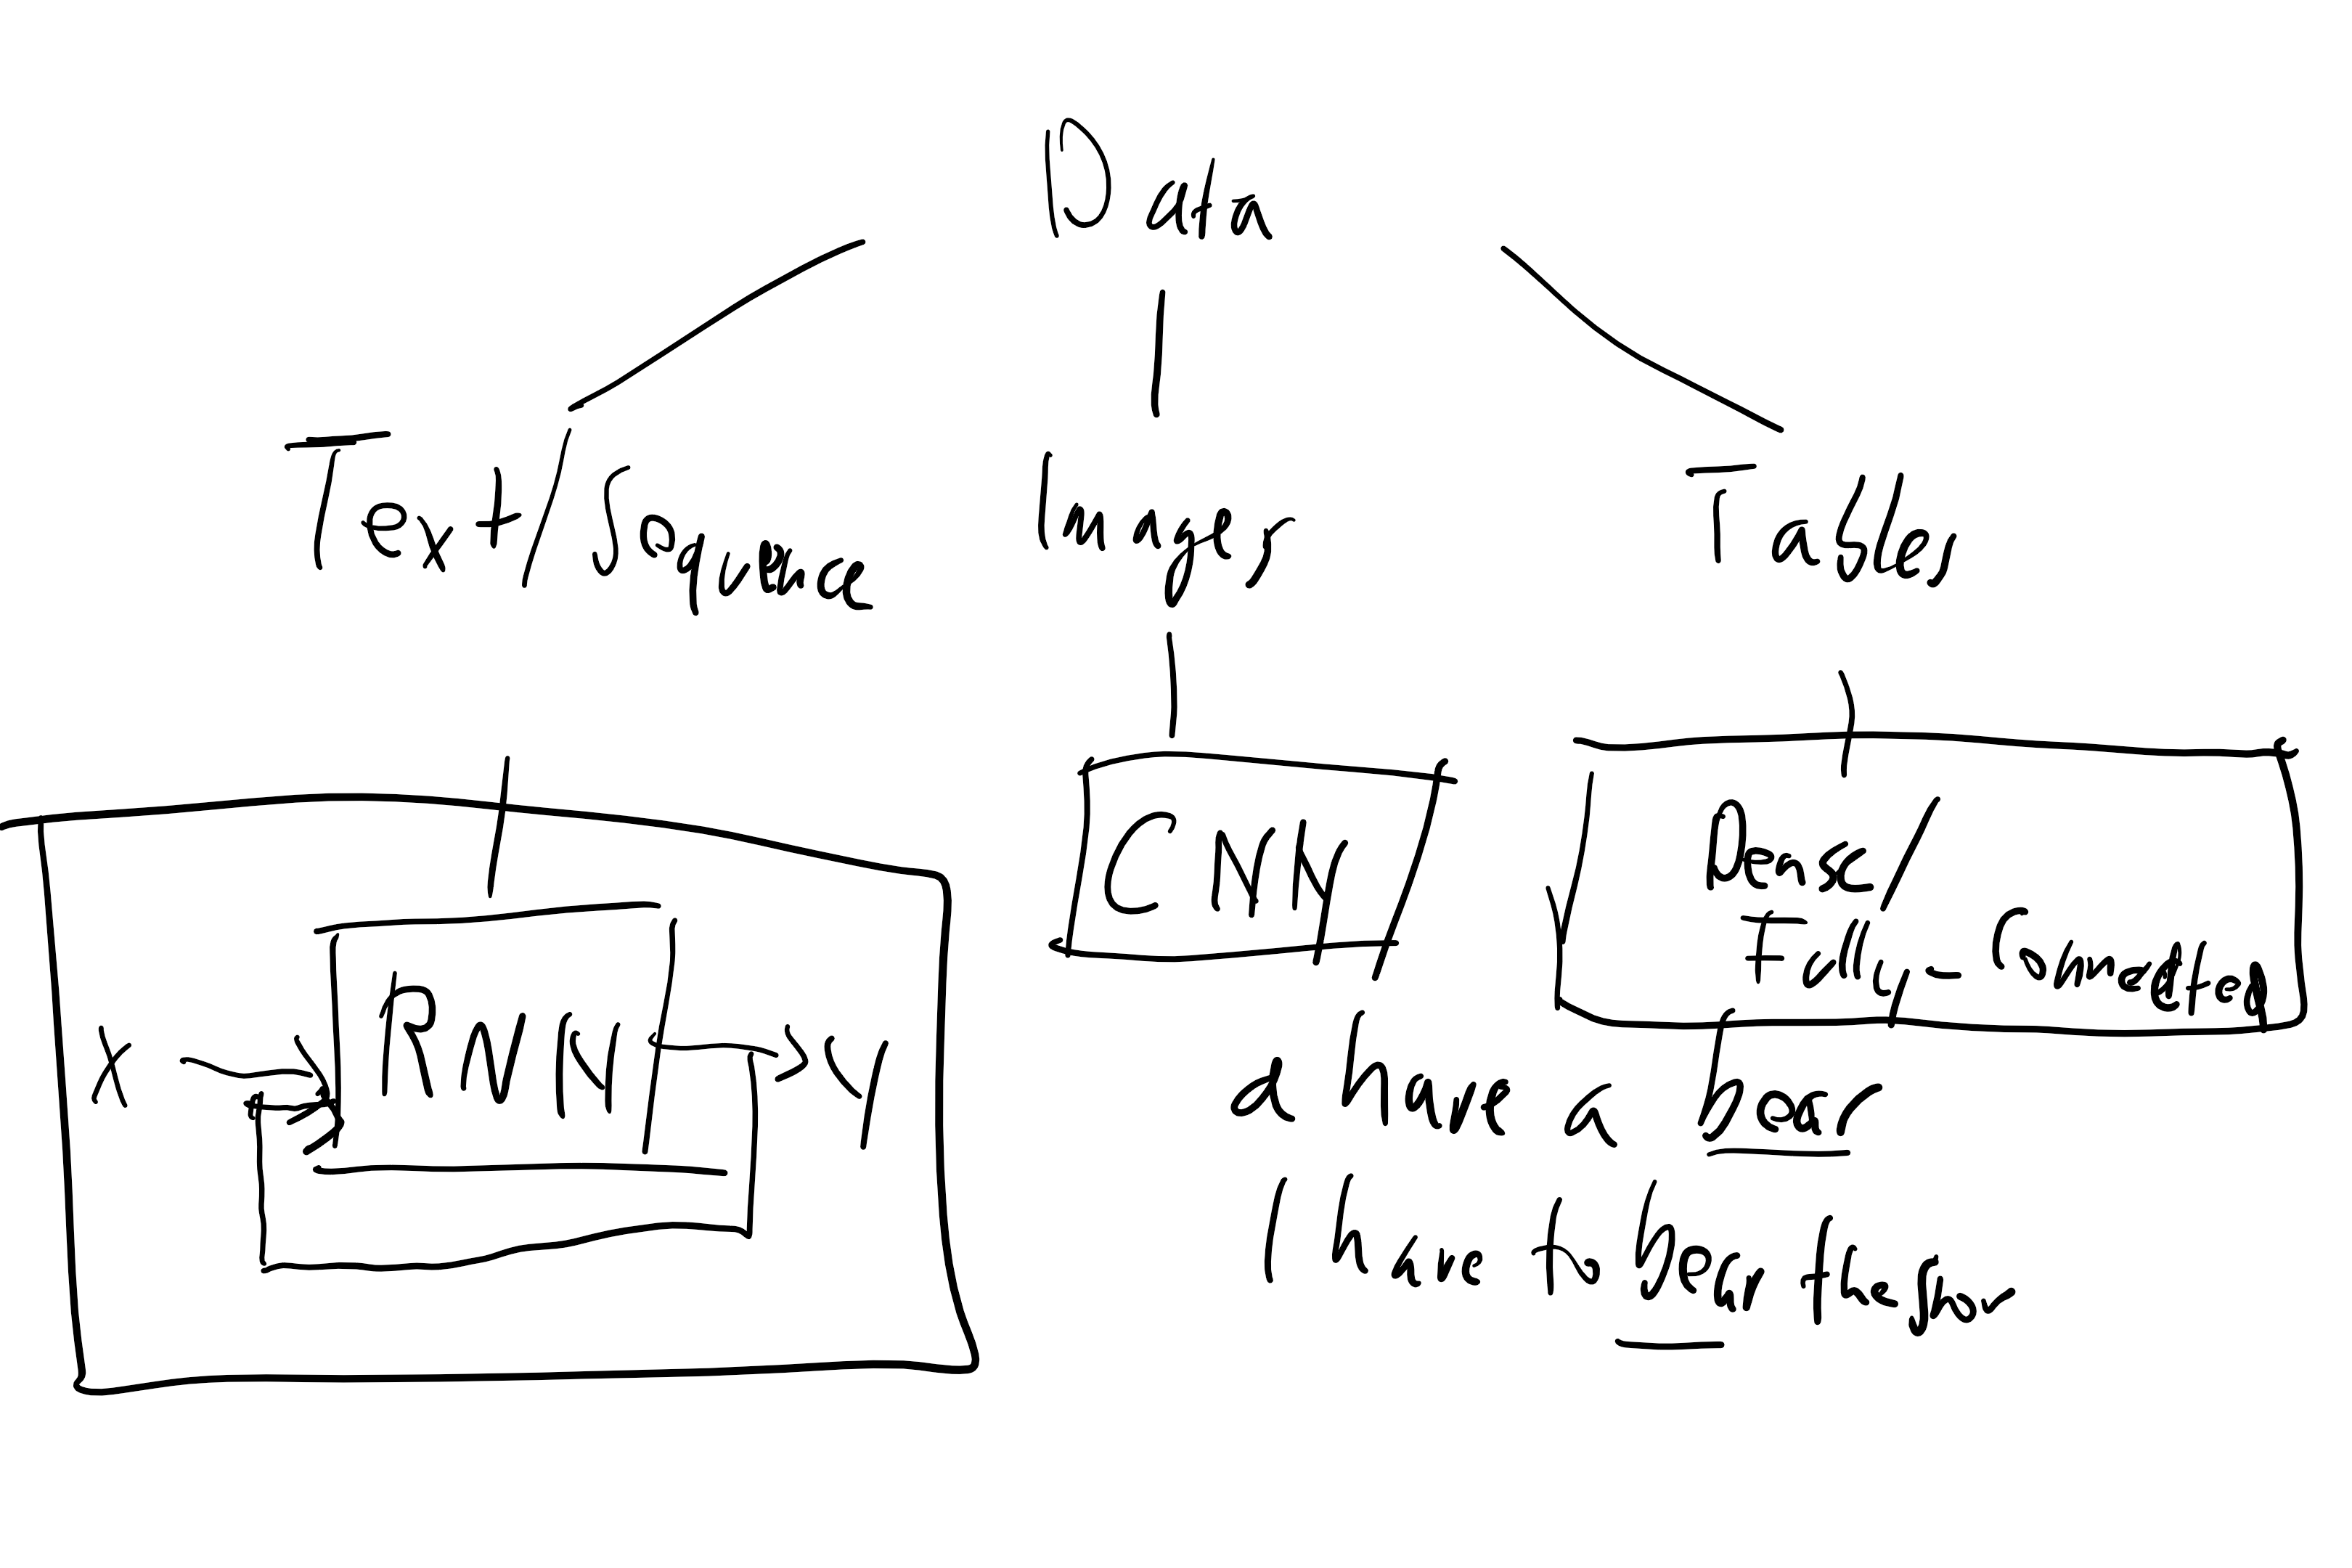 Data
Text/Sequence Images Tables
CNN Dense/
Fully-Connected
X RNN Y
a have a bear
I have to bear the